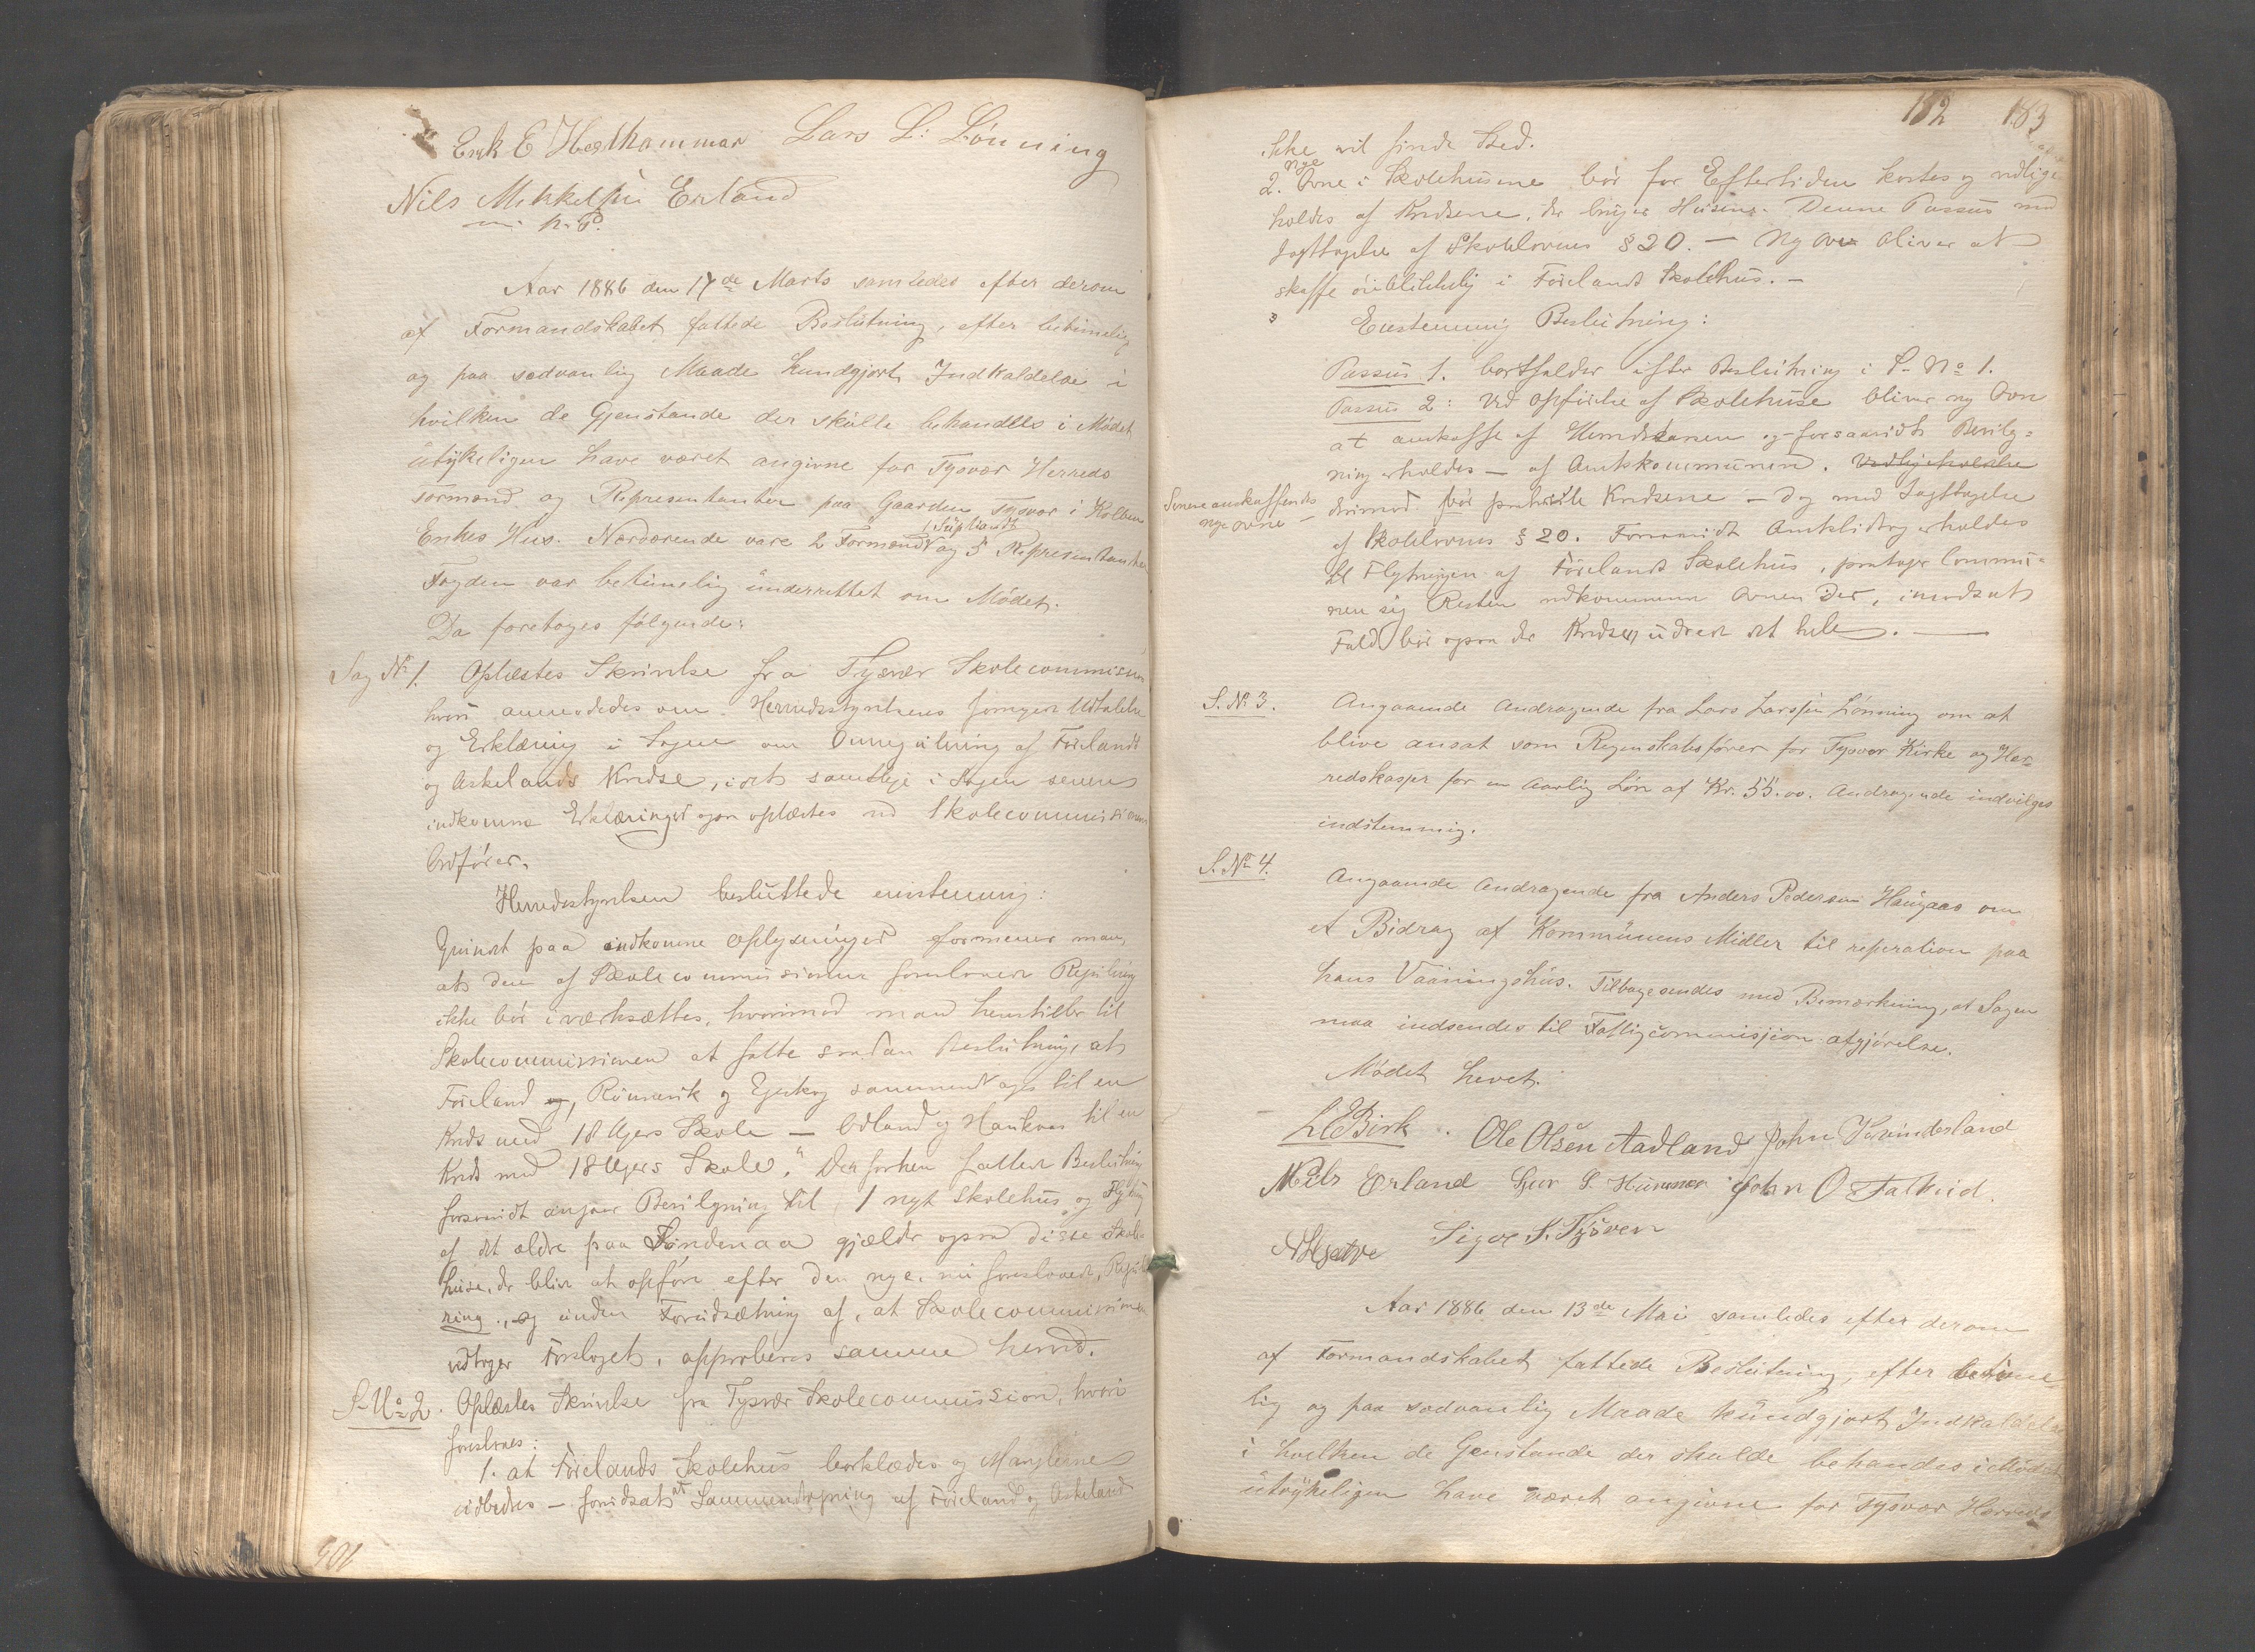 Erik E Hesthammar Lars L: Lönning
Nils Mikkelsen Erland
m. p. P.
Aar 1886 den 17de Marts samledes efter derom
af Formandskabet fattede Beslutning, efter betimelig
og paa sedvanlig Maade kundgjort Indkaldelse i
hvilken de Gjenstande der skulle behandles i Mödet
utrykeligen have været angivne for Tysvær Herreds
Formænd og Repræsentanter paa Gaarden Tysvær i Kolben
Enkes Hus. Nærværende vare 2 Formænd og 5 Repræsentanter
1 Supliant
Fogden var betimelig underrettet om Mödet.
Da foretoges fölgende:
Sag No 1. Oplæstes Skrivelse fra Tysvær Skolecommission
hvori anmodedes om Herredsstyrelsens fornyede Udtalelse
og Erklæring i Sagen om Omregulering af Föielands
og Askelands Kredse, idet samtlige i Sagen senere
indkomne Erklæringer ogsaa oplæstes ved Skolecommissionens
Ordförer.
Herredsstyrelsen besluttede enstemmig:
Grundet paa indkomne Oplysninger formener man,
at den af Skolecommissionen foreslaaede Regulering
ikke bör iværksættes, hvorimod man henstiller til
Skolecommissionen at fatte saadan Beslutning, at
Föieland og, Römervik og Epskog sammendrages til en
Kreds med 18 Ugers Skole — Odland og Haukaas til en
Kreds med 18 Ugers Skole." Den forhen fattede Beslutning
forsaavidt angaar Bevilgning til 1 nyt Skolehus og Flytning
af det ældre paa Söndenaa gjælder ogsaa disse Skole-
huse, der bliver at opföre efter den nye, nu foreslaaede, Regule
ring., og under Forudsætning af, at Skolecommissionen
vedtager Forslaget, approberes samme herved.
S. No 2. Oplæstes Skrivelse fra Tysvær Skolecommission, hvori
foreslaaes:
1. at Föielands Skolehus bordklædes og Manglerne
udbedres — forudsat at Sammendragning af Föieland og Askeland
106
182 183
ikke vil finde Sted.
2. nye Ovne i Skolehusene bör for Eftertiden kostes og vedlige
holdes af Kredsene, der bruger Husene. Denne Passus med
Iagttagelse af Skolelovens § 20. — Ny Ovn bliver at
skaffe öieblikkelig i Föielands Skolehus. —
Enstemmig Beslutning:
Passus 1. bortfalder efter Beslutning i S. No 1.
Passus 2: Ved Opförelse af Skolehuse bliver ny Ovn
at anskaffe af Herredskassen og forsaavidt Bevilg-
ning erholdes — af Amtskommunen. Vedligeholdelse
Senere anskaffende
nye ovne —
derimod bör paahvile Kredsene — dog med Iagttagelse
af Skolelovens § 20. Forsaavidt Amtsbidrag erholdes
til Flytningen af Föielands Skolehus, paatager Commu-
nen sig Resten vedkommende Ovnen der, i modsat
Fald bör ogsaa der Kredsen udrede det hele. —
S. No 3. Angaaende Andragende fra Lars Larssen Lönning om at
blive ansat som Regnskabsförer for Tysvær Kirke og Her-
redskasser for en Aarlig Lön af Kr. 55.00. Andragende indvilges
indstemmig.
S. No 4. Angaaende Andragende fra Anders Pedersen Haugaas om
et Bidrag af Kommunens Midler til reperation paa
hans Vaaningshus. Tilbagesendes med Bemærkning, at Sagen
maa indsendes til Fattigcommisjion afgjörelse.
Mödet hevet.
L E Birk. Ole Olsen Aadland John Kvinnesland
Nils Erland Sjur S. Hammer John O Falkeid.
N Hjertve Sigve S. Tysver
Aar 1886 den 13de Mai samledes efter derom
af Formandskabet fattede Beslutning, efter betime-
lig og paa sædvanlig Maade kundgjort Indkaldelse
i hvilken de Genstande der skulde behandes i Mödet
utrykeligen have været angivne for Tysvær Herreds